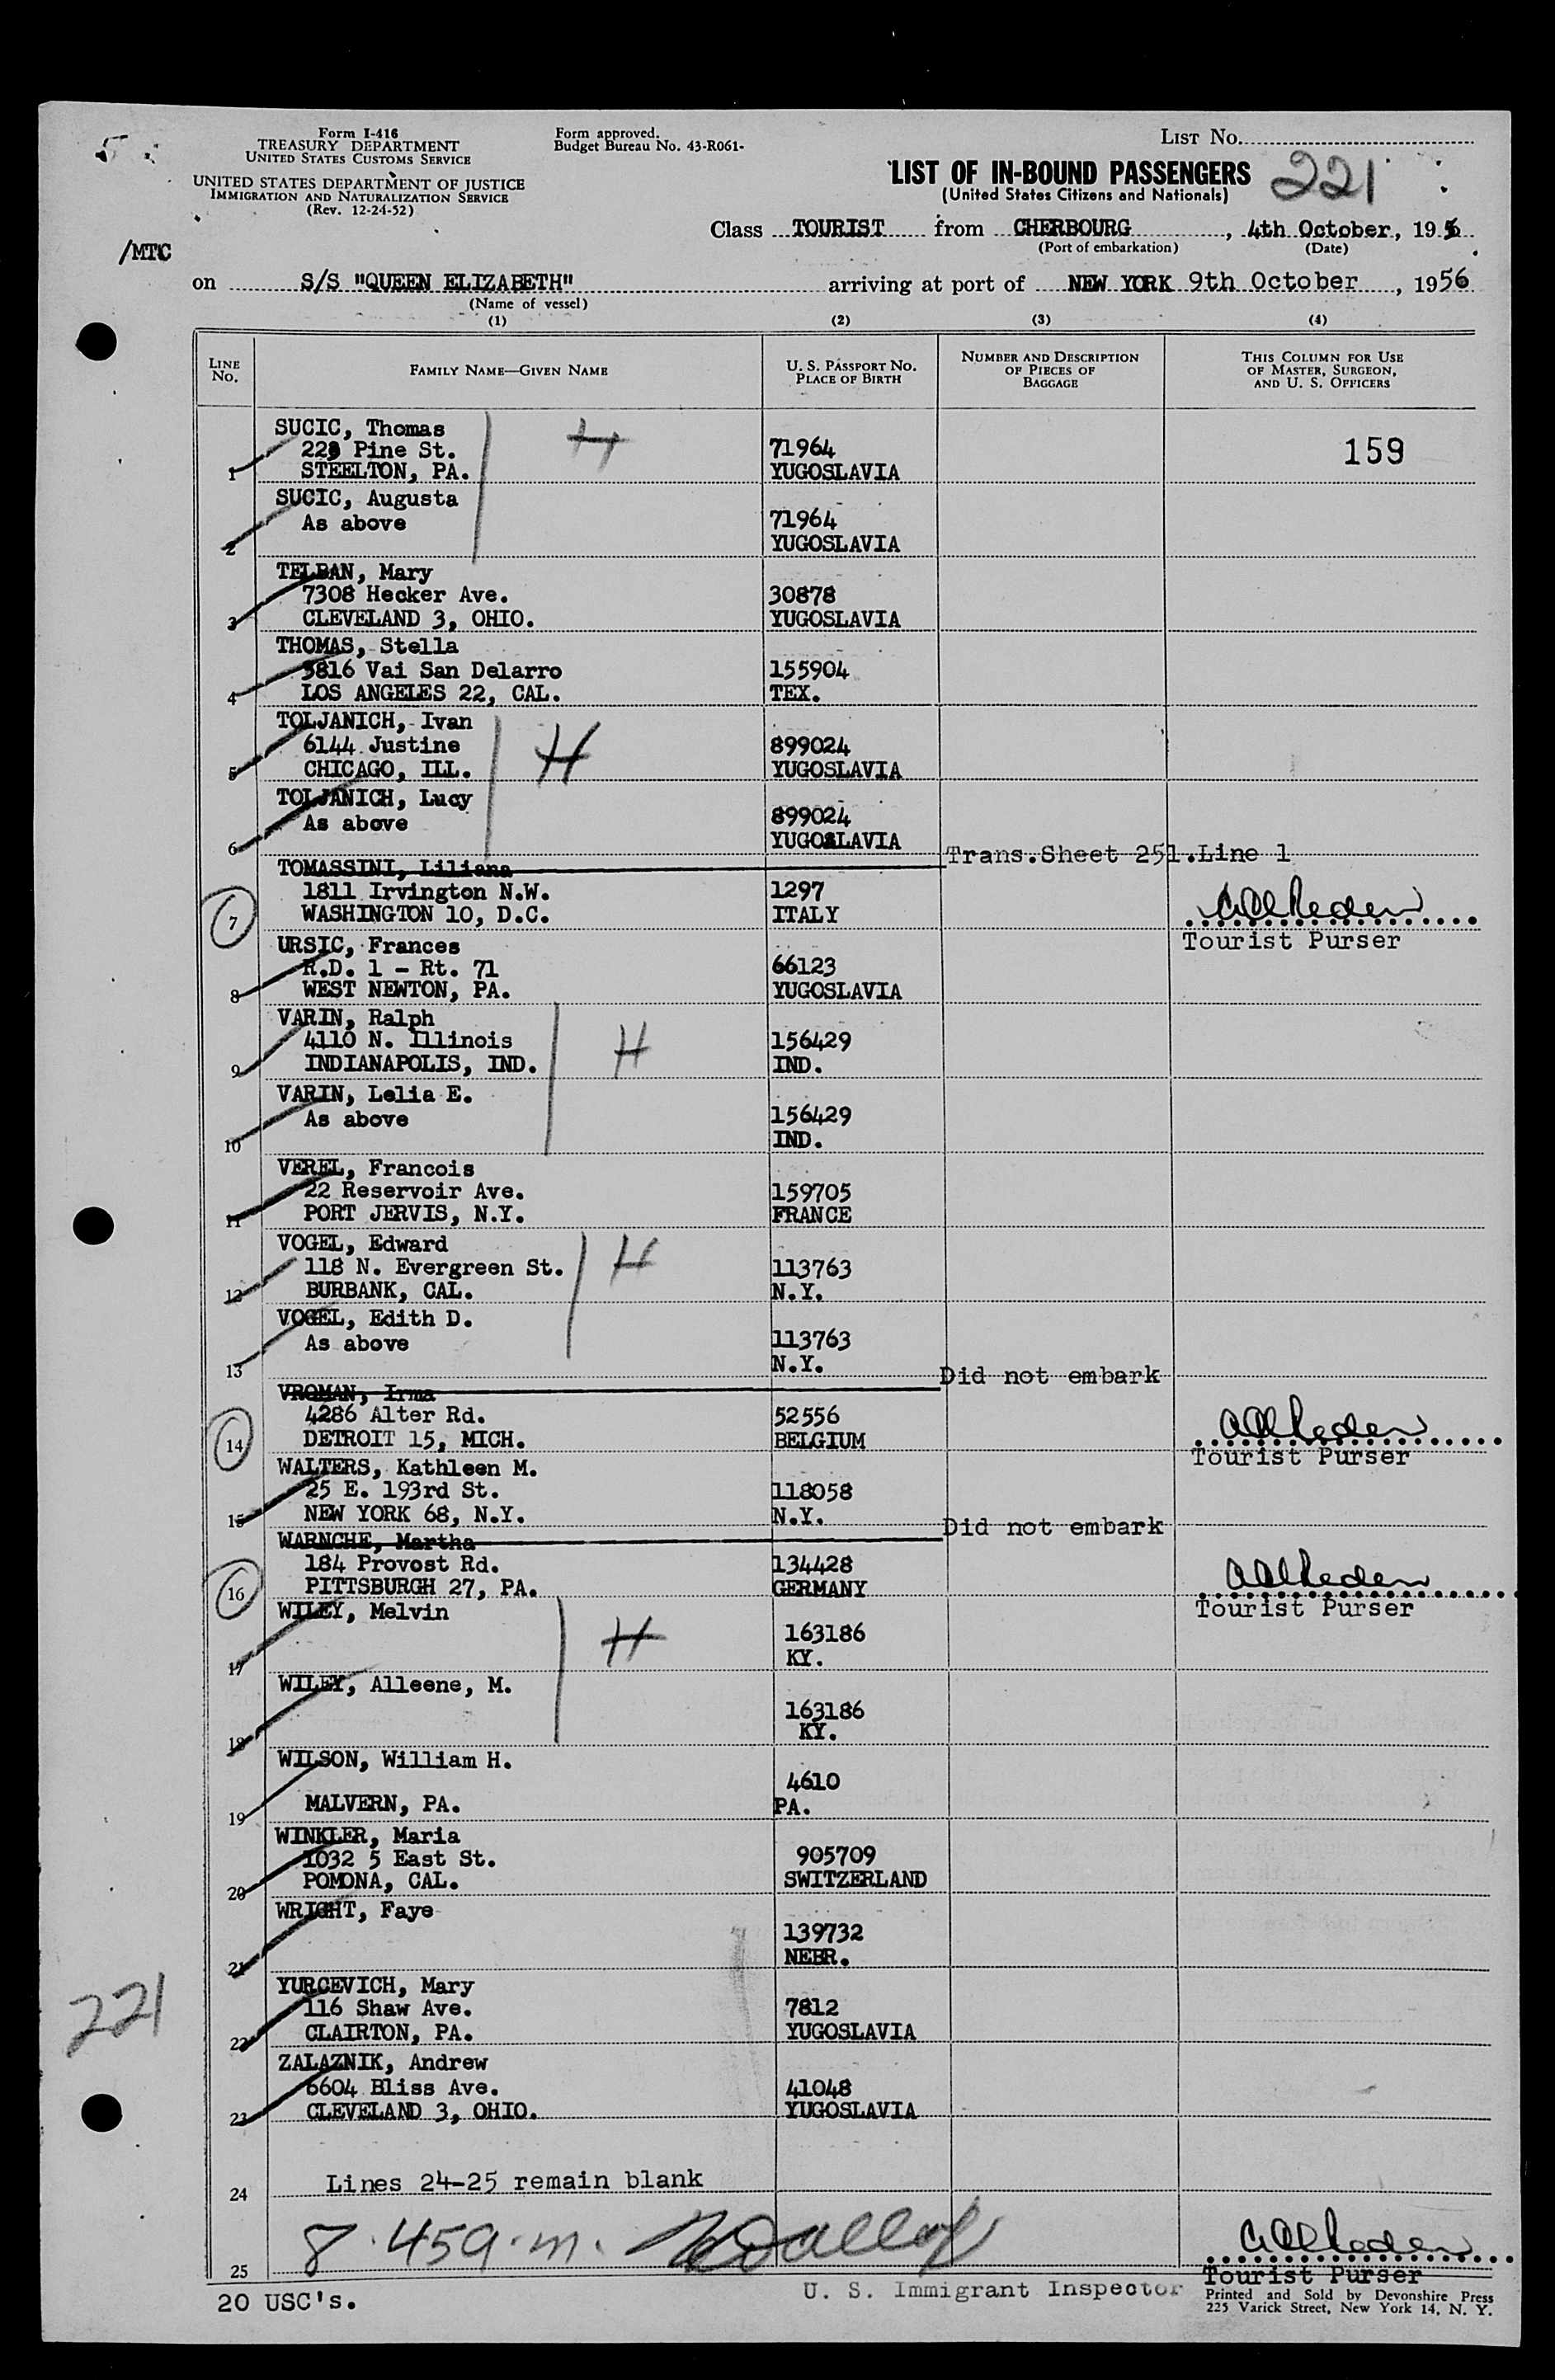 Form I-416
TREASURY DEPARTMENT
UNITED STATES CUSTOMS SERVICE
UNITED STATES DEPARTMENT OF JUSTICE
IMMIGRATION AND NATURALIZATION SERVICE
(Rev. 12-24-52)
Form approved.
Budget Bureau No. 43-R061-
LIST No.
LIST OF IN-BOUND PASSENGERS 221
(United States Citizens and Nationals)
/MTC
Class TOURIST from CHERBOURG, 4th October, 1956
(Port of embarkation) (Date)
on S/S "QUEEN ELIZABETH" arriving at port of NEW YORK 9th October, 1956
(Name of vessel)
(1) (2) (3) (4)
LINE No. FAMILY NAME—GIVEN NAME U. S. PASSPORT No. PLACE OF BIRTH NUMBER AND DESCRIPTION OF PIECES OF BAGGAGE THIS COLUMN FOR USE OF MASTER, SURGEON, AND U. S. OFFICERS
SUCIC, Thomas H
229 Pine St. 71964 159
1 STEELTON, PA. YUGOSLAVIA
SUCIC, Augusta
As above 71964
2 YUGOSLAVIA
TELBAN, Mary
7308 Hecker Ave. 30878
3 CLEVELAND 3, OHIO. YUGOSLAVIA
THOMAS, Stella
5816 Vai San Delarro 155904
4 LOS ANGELES 22, CAL. TEX.
TOLJANICH, Ivan H
6144 Justine 899024
5 CHICAGO, ILL. YUGOSLAVIA
TOLJANICH, Lucy
As above 899024
6 YUGOSLAVIA
Trans.Sheet 251.Line 1
TOMASSINI, Liliana
1811 Irvington N.W. 1297
7 WASHINGTON 10, D.C. ITALY
Tourist Purser
URSIC, Frances
R.D. 1 - Rt. 71 66123
8 WEST NEWTON, PA. YUGOSLAVIA
VARIN, Ralph
4110 N. Illinois H 156429
9 INDIANAPOLIS, IND. IND.
VARIN, Lelia E.
As above 156429
10 IND.
VEREL, Francois
22 Reservoir Ave. 159705
11 PORT JERVIS, N.Y. FRANCE
VOGEL, Edward H
118 N. Evergreen St. 113763
12 BURBANK, CAL. N.Y.
VOGEL, Edith D.
As above 113763
13 N.Y.
Did not embark
VROMAN, Irma
4286 Alter Rd. 52556
14 DETROIT 15, MICH. BELGIUM
Tourist Purser
WALTERS, Kathleen M.
25 E. 193rd St. 118058
15 NEW YORK 68, N.Y. N.Y.
Did not embark
WARNCHE, Martha
184 Provost Rd. 134428
16 PITTSBURGH 27, PA. GERMANY
Tourist Purser
WILEY, Melvin
H 163186
17 KY.
WILEY, Alleene, M.
163186
18 KY.
WILSON, William H.
4610
19 MALVERN, PA. PA.
WINKLER, Maria
1032 5 East St. 905709
20 POMONA, CAL. SWITZERLAND
WRIGHT, Faye
139732
21 NEBR.
YURCEVICH, Mary
116 Shaw Ave. 7812
22 CLAIRTON, PA. YUGOSLAVIA
221
ZALAZNIK, Andrew
6604 Bliss Ave. 41048
23 CLEVELAND 3, OHIO. YUGOSLAVIA
24 Lines 24-25 remain blank
25
Tourist Purser
20 USC's.
U. S. Immigrant Inspector
Printed and Sold by Devonshire Press
225 Varick Street, New York 14, N. Y.